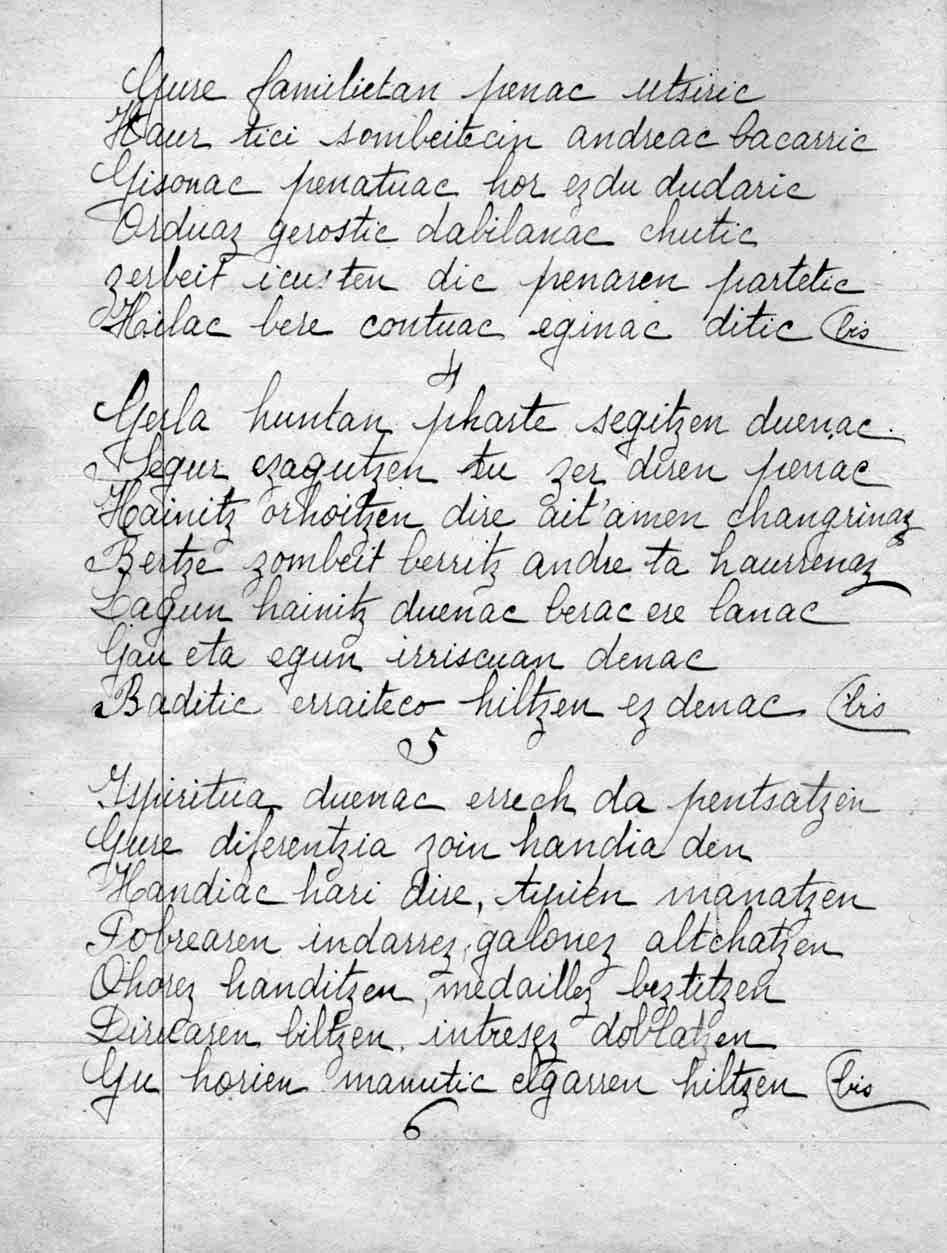 Gure familietan penac utsiric
Haur tici sombeitecin andreac bacarric
Gisonac penatuac hor ezdu dudaric
Orduaz gerostic dabilanac chutic
zerbeit icusten dic penaren partetic
Hilac bere contuac eginac ditic (bis
4
Gerla huntan pharte segitzen duenac.
Segur ezagutzen tu zer diren penac
Hainitz orhoitzen dire ait'amen changrinaz
Bertze zombeit berritz andre ta haurrenaz
Lagun hainitz duenac berac ere lanac
Gau eta egun irriscuan denac
Baditic erraiteco hiltzen ez denac (bis
5
Ispiritua duenac errech da pentsatzen
Gure diferentzia zoin handia den
Handiac hari dire, tipien manatzen
Pobrearen indarrez, galonez altchatzen
Ohorez handitzen, medaillez beztitzen
Diruaren biltzen, intresez doblatzen
Gu horien manutic elgarren hiltzen (bis
6